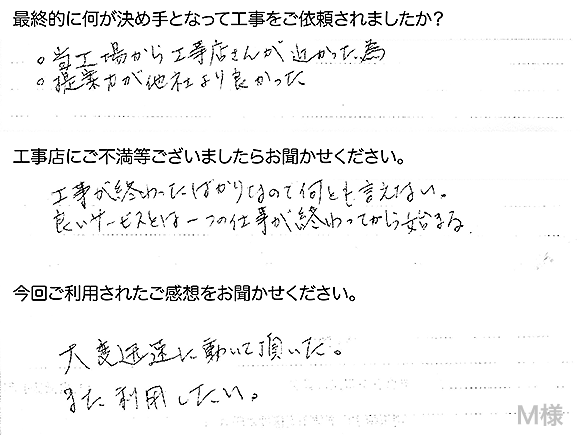 最終的に何が決め手となって工事をご依頼されましたか?
○当工場から工事店さんが近かった為
○提案力が他社より良かった
工事店にご不満等ございましたらお聞かせください。
工事が終わったばかりなので何とも言えない。
良いサービスとは一つの仕事が終わってから始まる
今回ご利用されたご感想をお聞かせください。
大変迅速に動いて頂いた。
また利用したい。
M様